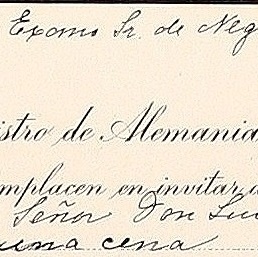 Exomo Sr. de Neg
istro de Alemania
mplacen en invitar a
Señor Don Lui
una cena